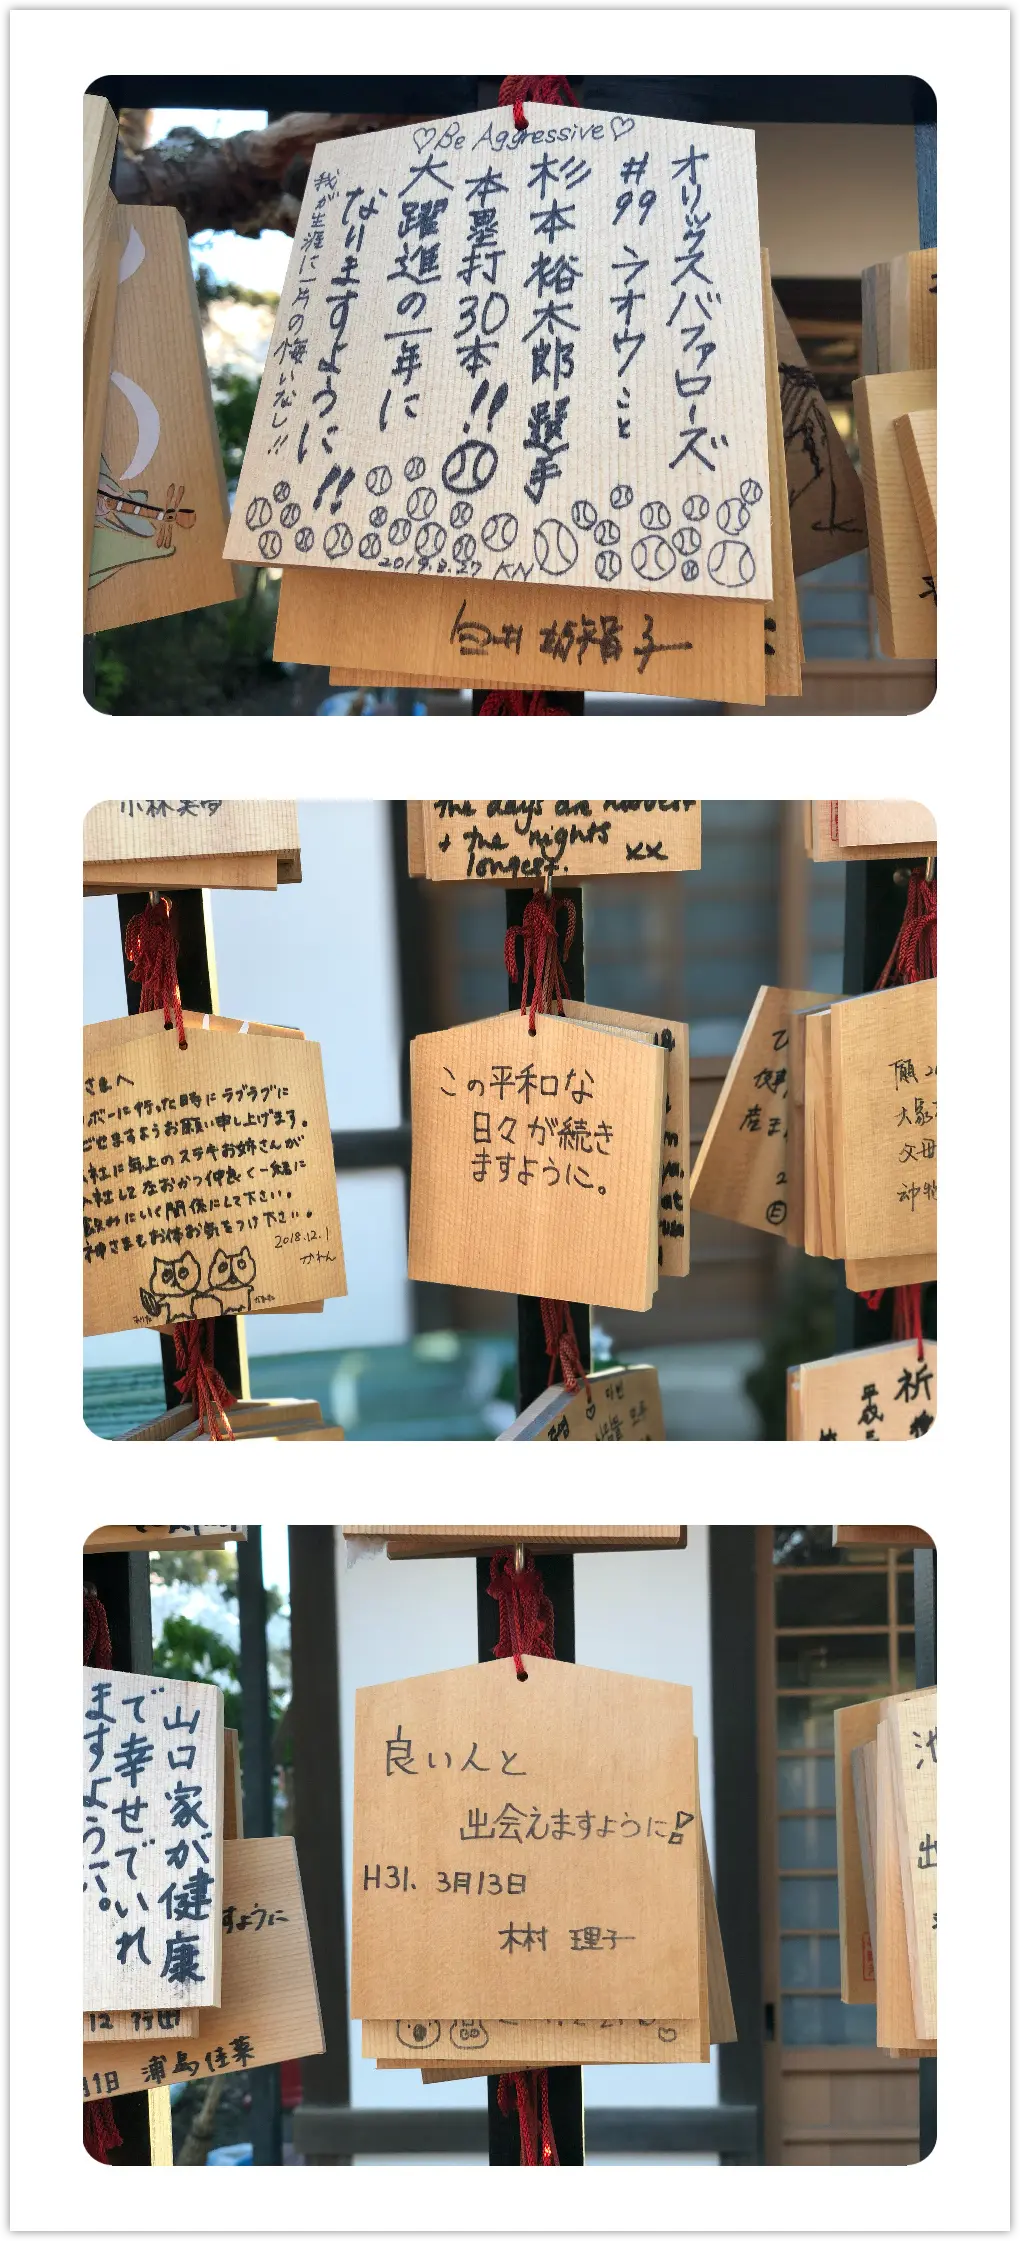 ♡Be Aggressive♡
オリックスバファローズ
#99 ラオウこと
杉本裕太郎選手
本塁打30本!!
大躍進の一年に
なりますように!!
我が生涯に一片の悔いなし!!
2019.3.27 KN
子
小林美夢
the days are
+ the nights
longest. xx
さまへ
ボーに行った時にラブラブに
ごせますようお願い申し上げます。
社に年上のステキお姉さんが
社してなおかつ仲良く一緒に
飲みにいく関係にして下さい。
神さまもお体お気をつけ下さい。
2018.12.1
かわん
この平和な
日々が続き
ますように。
願
父母
祈
平成
山口家が健康
で幸せでいれ
ますように。
すように
12 行田
月1日 浦島佳菜
良い人と
出会えますように!
H31. 3月13日
木村 理子
池
出